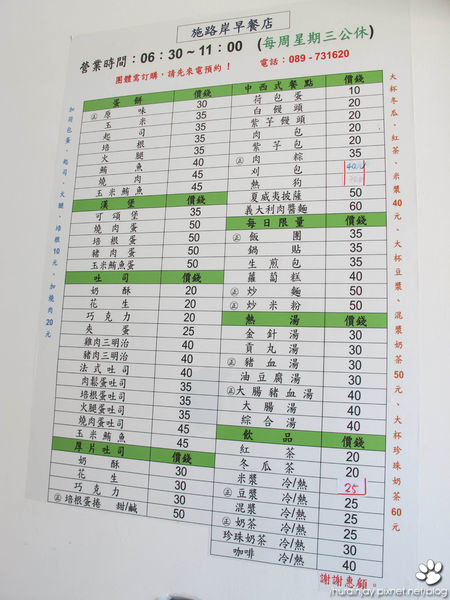 施路岸早餐店
營業時間：06：30～11：00 (每周星期三公休)
團體需訂購，請先來電預約！ 電話：089-731620
蛋餅 價錢
㊣原味 30
玉米 35
起司 35
培根 35
火腿 35
鮪魚 40
燒肉 45
玉米鮪魚 45
漢堡 價錢
可頌堡 35
燒肉蛋 50
培根蛋 50
豬肉蛋 50
玉米鮪魚蛋 50
吐司 價錢
奶酥 20
花生 20
巧克力 20
夾蛋 30
雞肉三明治 40
豬肉三明治 40
法式吐司 40
肉鬆蛋吐司 40
培根蛋吐司 40
火腿蛋吐司 40
燒肉蛋吐司 45
玉米鮪魚 45
厚片吐司 價錢
奶酥 30
花生 30
巧克力 30
㊣培根蛋捲 甜/鹹 50
中西式餐點 價錢
荷包蛋 10
白饅頭 20
紫芋饅頭 20
肉包 20
紫芋包 20
㊣肉粽 35
刈包
熱狗
夏威夷披薩 50
義大利肉醬麵 60
每日限量 價錢
㊣飯團 35
鍋貼 35
生煎包 35
蘿蔔糕 40
㊣炒麵 50
㊣炒米粉 50
熱湯 價錢
金針湯 30
貢丸湯 30
㊣豬血湯 30
油豆腐湯 30
㊣大腸豬血湯 40
大腸湯 40
綜合湯 40
飲品 價錢
紅茶 20
冬瓜茶 20
米漿 冷/熱 25
㊣豆漿 冷/熱 25
混漿 冷/熱 25
㊣奶茶 冷/熱 25
珍珠奶茶 冷/熱 30
咖啡 冷/熱 40
謝謝惠顧。
加荷包蛋、起司、火腿、培根10元、加燒肉20元
大杯冬瓜、紅茶、米漿40元、大杯豆漿、混漿奶茶50元、大杯珍珠奶茶60元
murainjay.pixnet.net/blog